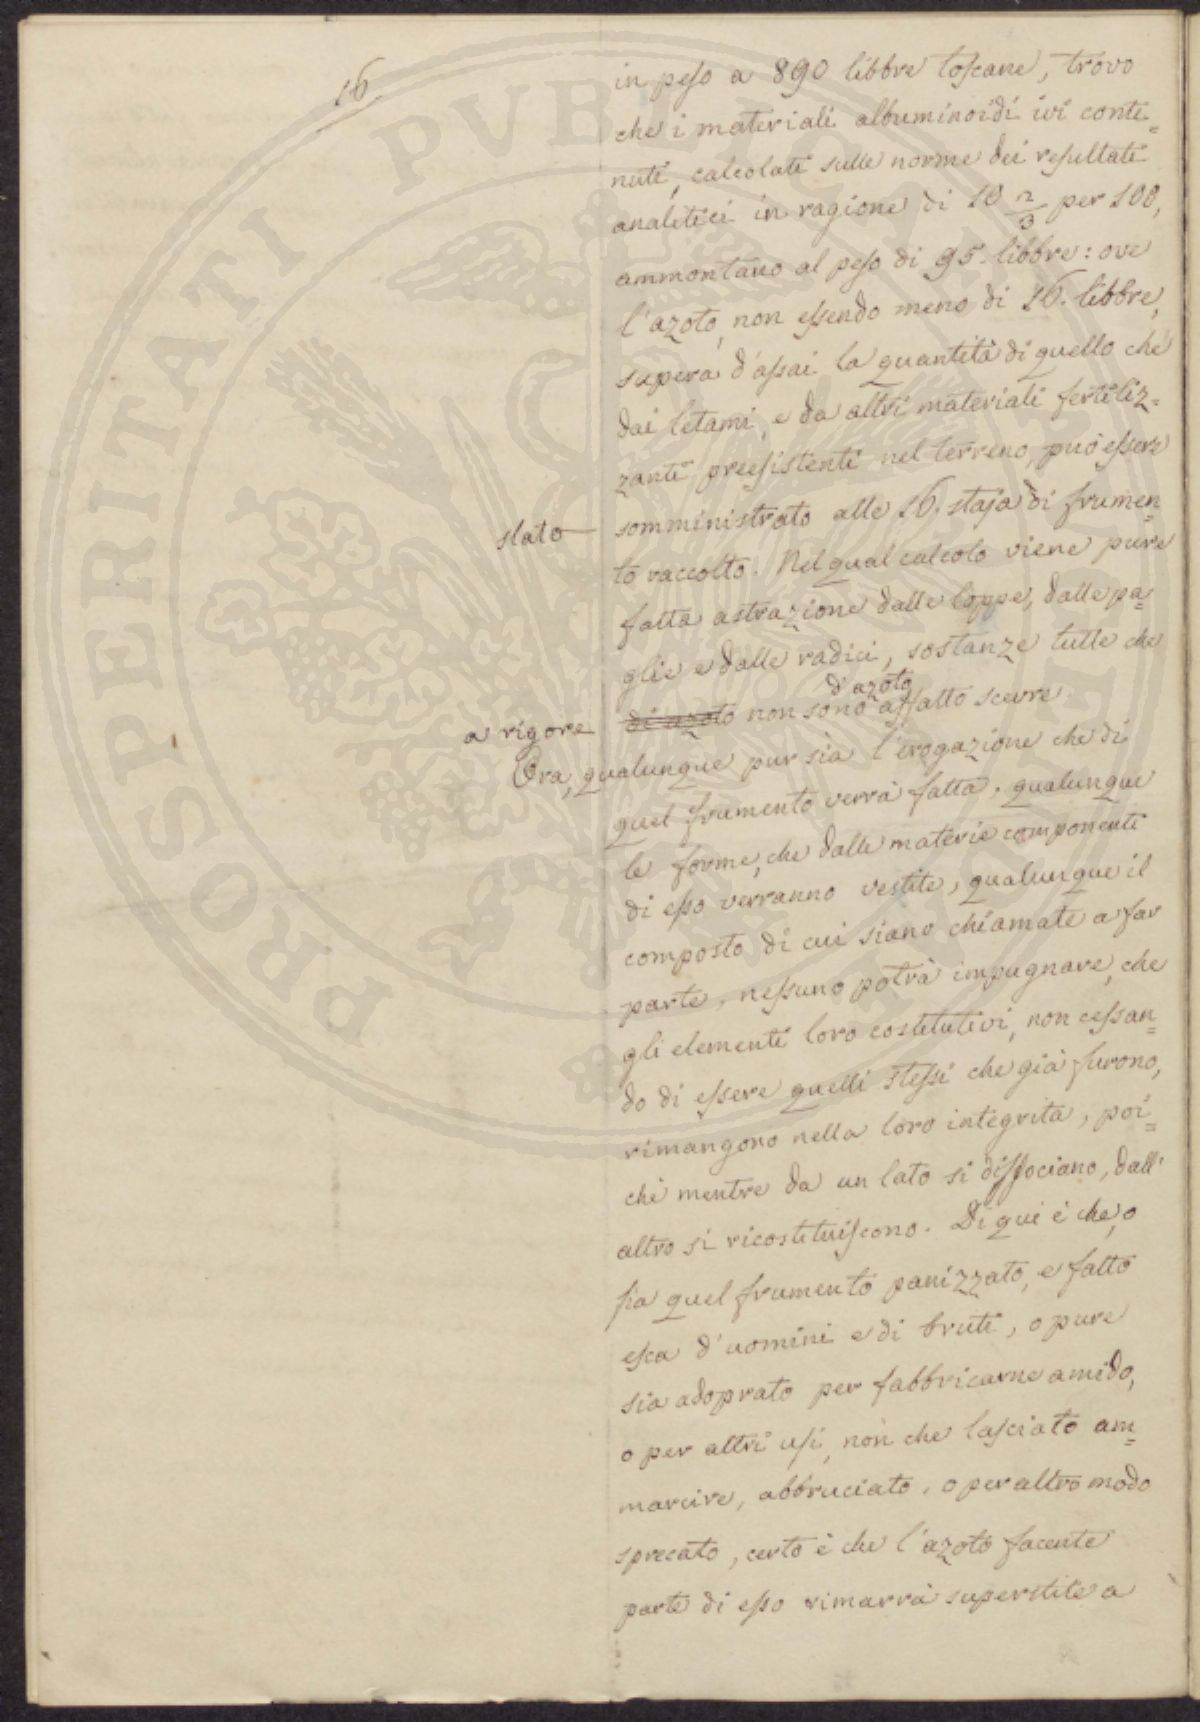 16
in peso a 890 libbre toscane, trovo
che i materiali albuminoidi ivi conte=
nuti, calcolati sulle norme dei resultati
analitici in ragione di 10 2/3 per 100,
ammontano al peso di 95. libbre: ove
l'azoto, non essendo meno di 16. libbre,
supera d'assai la quantità di quello che
dai letami, e da altri materiali fertiliz=
zanti preesistenti nel terreno, può essere
stato somministrato alle 16. staja di frumen=
to raccolto. Nel qual calcolo viene pure
fatta astrazione dalle loppe, dalle pa=
glie e dalle radici, sostanze tutte che
d'azoto
a rigore di azoto non sono affatto scevre.
Ora, qualunque pur sia l'erogazione che di
quel frumento verrà fatta, qualunque
le forme, che dalle materie componenti
di esso verranno vestite, qualunque il
composto di cui siano chiamate a far
parte, nessuno potrà impugnare, che
gli elementi loro costitutivi, non cessan=
do di essere quelli stessi che già furono,
rimangono nella loro integrità, poi=
chè mentre da un lato si dissociano, dall'
altro si ricostituiscono. Di qui è che, o
sia quel frumento panizzato, e fatto
esca d'uomini e di bruti, o pure
sia adoprato per fabbricarne amido,
o per altri usi, non che lasciato am=
marcire, abbruciato, o per altro modo
sprecato, certo è che l'azoto facente
parte di esso rimarrà superstite a
PROSPERITATI PVBLICAE